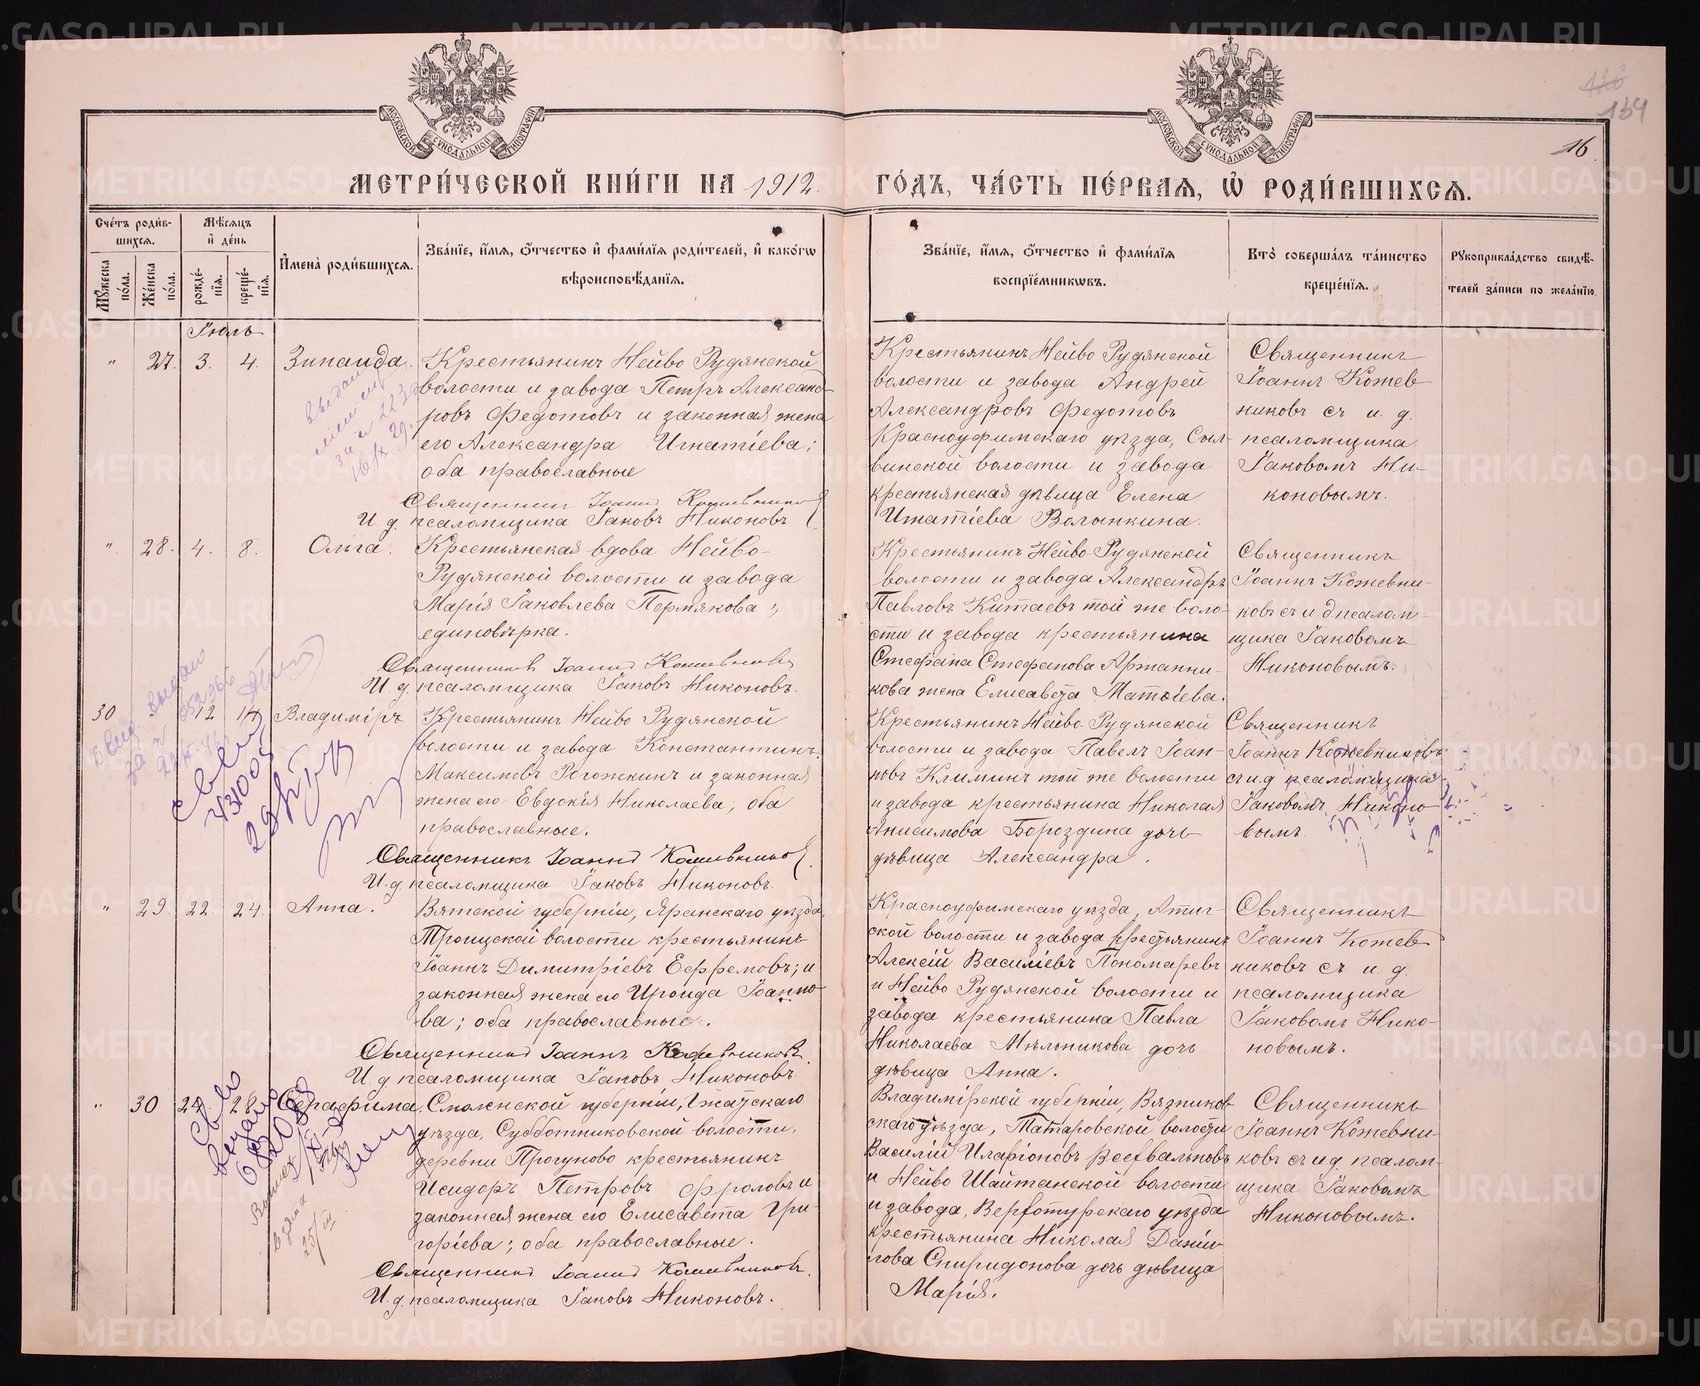 126
134
16
МЕТРИ́ЧЕСКОЙ КНИ́ГИ НА 1912.
ГО́ДЪ, ЧА́СТЬ ПЕ́РВАЯ, Ѡ҆ РОДИ́ВШИХСЯ.
Сче́тъ роди́в-
шихся.
Мꙋ́жеска по́ла.
Же́нска по́ла.
Мѣ́сяцъ
и҆ де́нь
рожде́-
нїѧ.
креще́-
нїѧ.
И҆мена̀ роди́вшихся.
Зва́нїе, и҆́мѧ, ѻ҆́тчество и҆ фами́лїѧ роди́телей, и҆ како́гѡ
вѣроисповѣ́данїѧ.
Зва́нїе, и҆́мѧ, ѻ҆́тчество и҆ фами́лїѧ
воспрїе́мникѡвъ.
Кто̀ соверша́лъ та́инство
креще́нїѧ.
Рꙋкоприкла́дство свидѣ́-
телей за́писи по жела́нїю.
Іюль
" 27. 3. 4. Зинаида.
Крестьянинъ Нейво Рудянской
волости и завода Петръ Александ-
ровъ Федотовъ и законная жена
его Александра Игнатіева;
оба православные
Священник Іоанн Кожевников
И. д. псаломщика Іаковъ Никоновъ
Крестьянинъ Нейво Рудянской
волости и завода Андрей
Александровъ Федотовъ
Красноуфимскаго уѣзда, Сыл-
винской волости и завода
крестьянская дѣвица Елена
Игнатіева Волынкина.
Священникъ
Іоаннъ Кожев-
никовъ съ и. д.
псаломщика
Іаковомъ Ни-
коновымъ.
". 28. 4. 8. Ольга.
Крестьянская вдова Нейво-
Рудянской волости и завода
Марія Іаковлева Пермякова;
единовѣрка.
Священников Іоанн Кожевников
И. д. псаломщика Іаковъ Никоновъ.
Крестьянинъ Нейво-Рудянской
волости и завода Александръ
Павловъ Китаевъ той же воло-
сти и завода крестьянина
Стефана Стефанова Аржанни-
кова жена Елисавета Матѳіева.
Священникъ
Іоаннъ Кожевни-
ковъ съ и д псалом-
щика Іаковомъ
Никоновымъ.
30 " 12 14 Владиміръ
Крестьянинъ Нейво Рудянской
волости и завода Константинъ
Максимовъ Рогожкинъ и законная
жена его Евдокія Николаева; оба
православные.
Священникъ Іоаннъ Кожевников.
И. д. псаломщика Іаковъ Никоновъ.
Крестьянинъ Нейво Рудянской
волости и завода Павелъ Іоан-
новъ Климинъ той же волости
и завода крестьянина Николая
Анисимова Бороздина дочь
дѣвица Александра.
Священникъ
Іоаннъ Кожевниковъ
съ и.д псаломщика
Іаковомъ Никоно-
вымъ.
" 29. 22. 24. Анна.
Вятской губерніи, Яранскаго уѣзда,
Троицкой волости крестьянинъ
Іоаннъ Димитріевъ Ефремовъ; и
законная жена его Ираида Іоанно-
ва; оба православные.
Священник Іоаннъ Кожевников.
И. д псаломщика Іаковъ Никоновъ.
Красноуфимскаго уѣзда, Атиг-
ской волости и завода крестьянинъ
Алексій Василіевъ Пономаревъ
и Нейво Рудянской волости и
завода крестьянина Павла
Николаева Мѣльникова дочь
дѣвица Анна.
Священникъ
Іоаннъ Кожев-
никовъ съ и. д.
псаломщика
Іаковомъ Нико-
новымъ.
" 30 24 28 Серафима.
Смоленской губерніи, Гжатскаго
уѣзда, Субботниковской волости,
деревни Прогуново крестьянинъ
Исидоръ Петровъ Фроловъ и
законная жена его Елисавета Гри-
горіева; оба православные.
Священник Іоанн Кожевников.
И. д. псаломщика Іаковъ Никоновъ.
Владимірской губерніи, Вязников-
скаго уѣзда, Татаровской волости
Василій Иларіоновъ
и Нейво Шайтанской волости
и завода, Верхотурскаго уѣзда
крестьянина Николая Даніи-
лова Спиридонова дочь дѣвица
Марія.
Священникъ
Іоаннъ Кожевни-
ковъ съ и д. псалом-
щика Іаковомъ
Никоновымъ.
METRIKI.GASO-URAL.RU